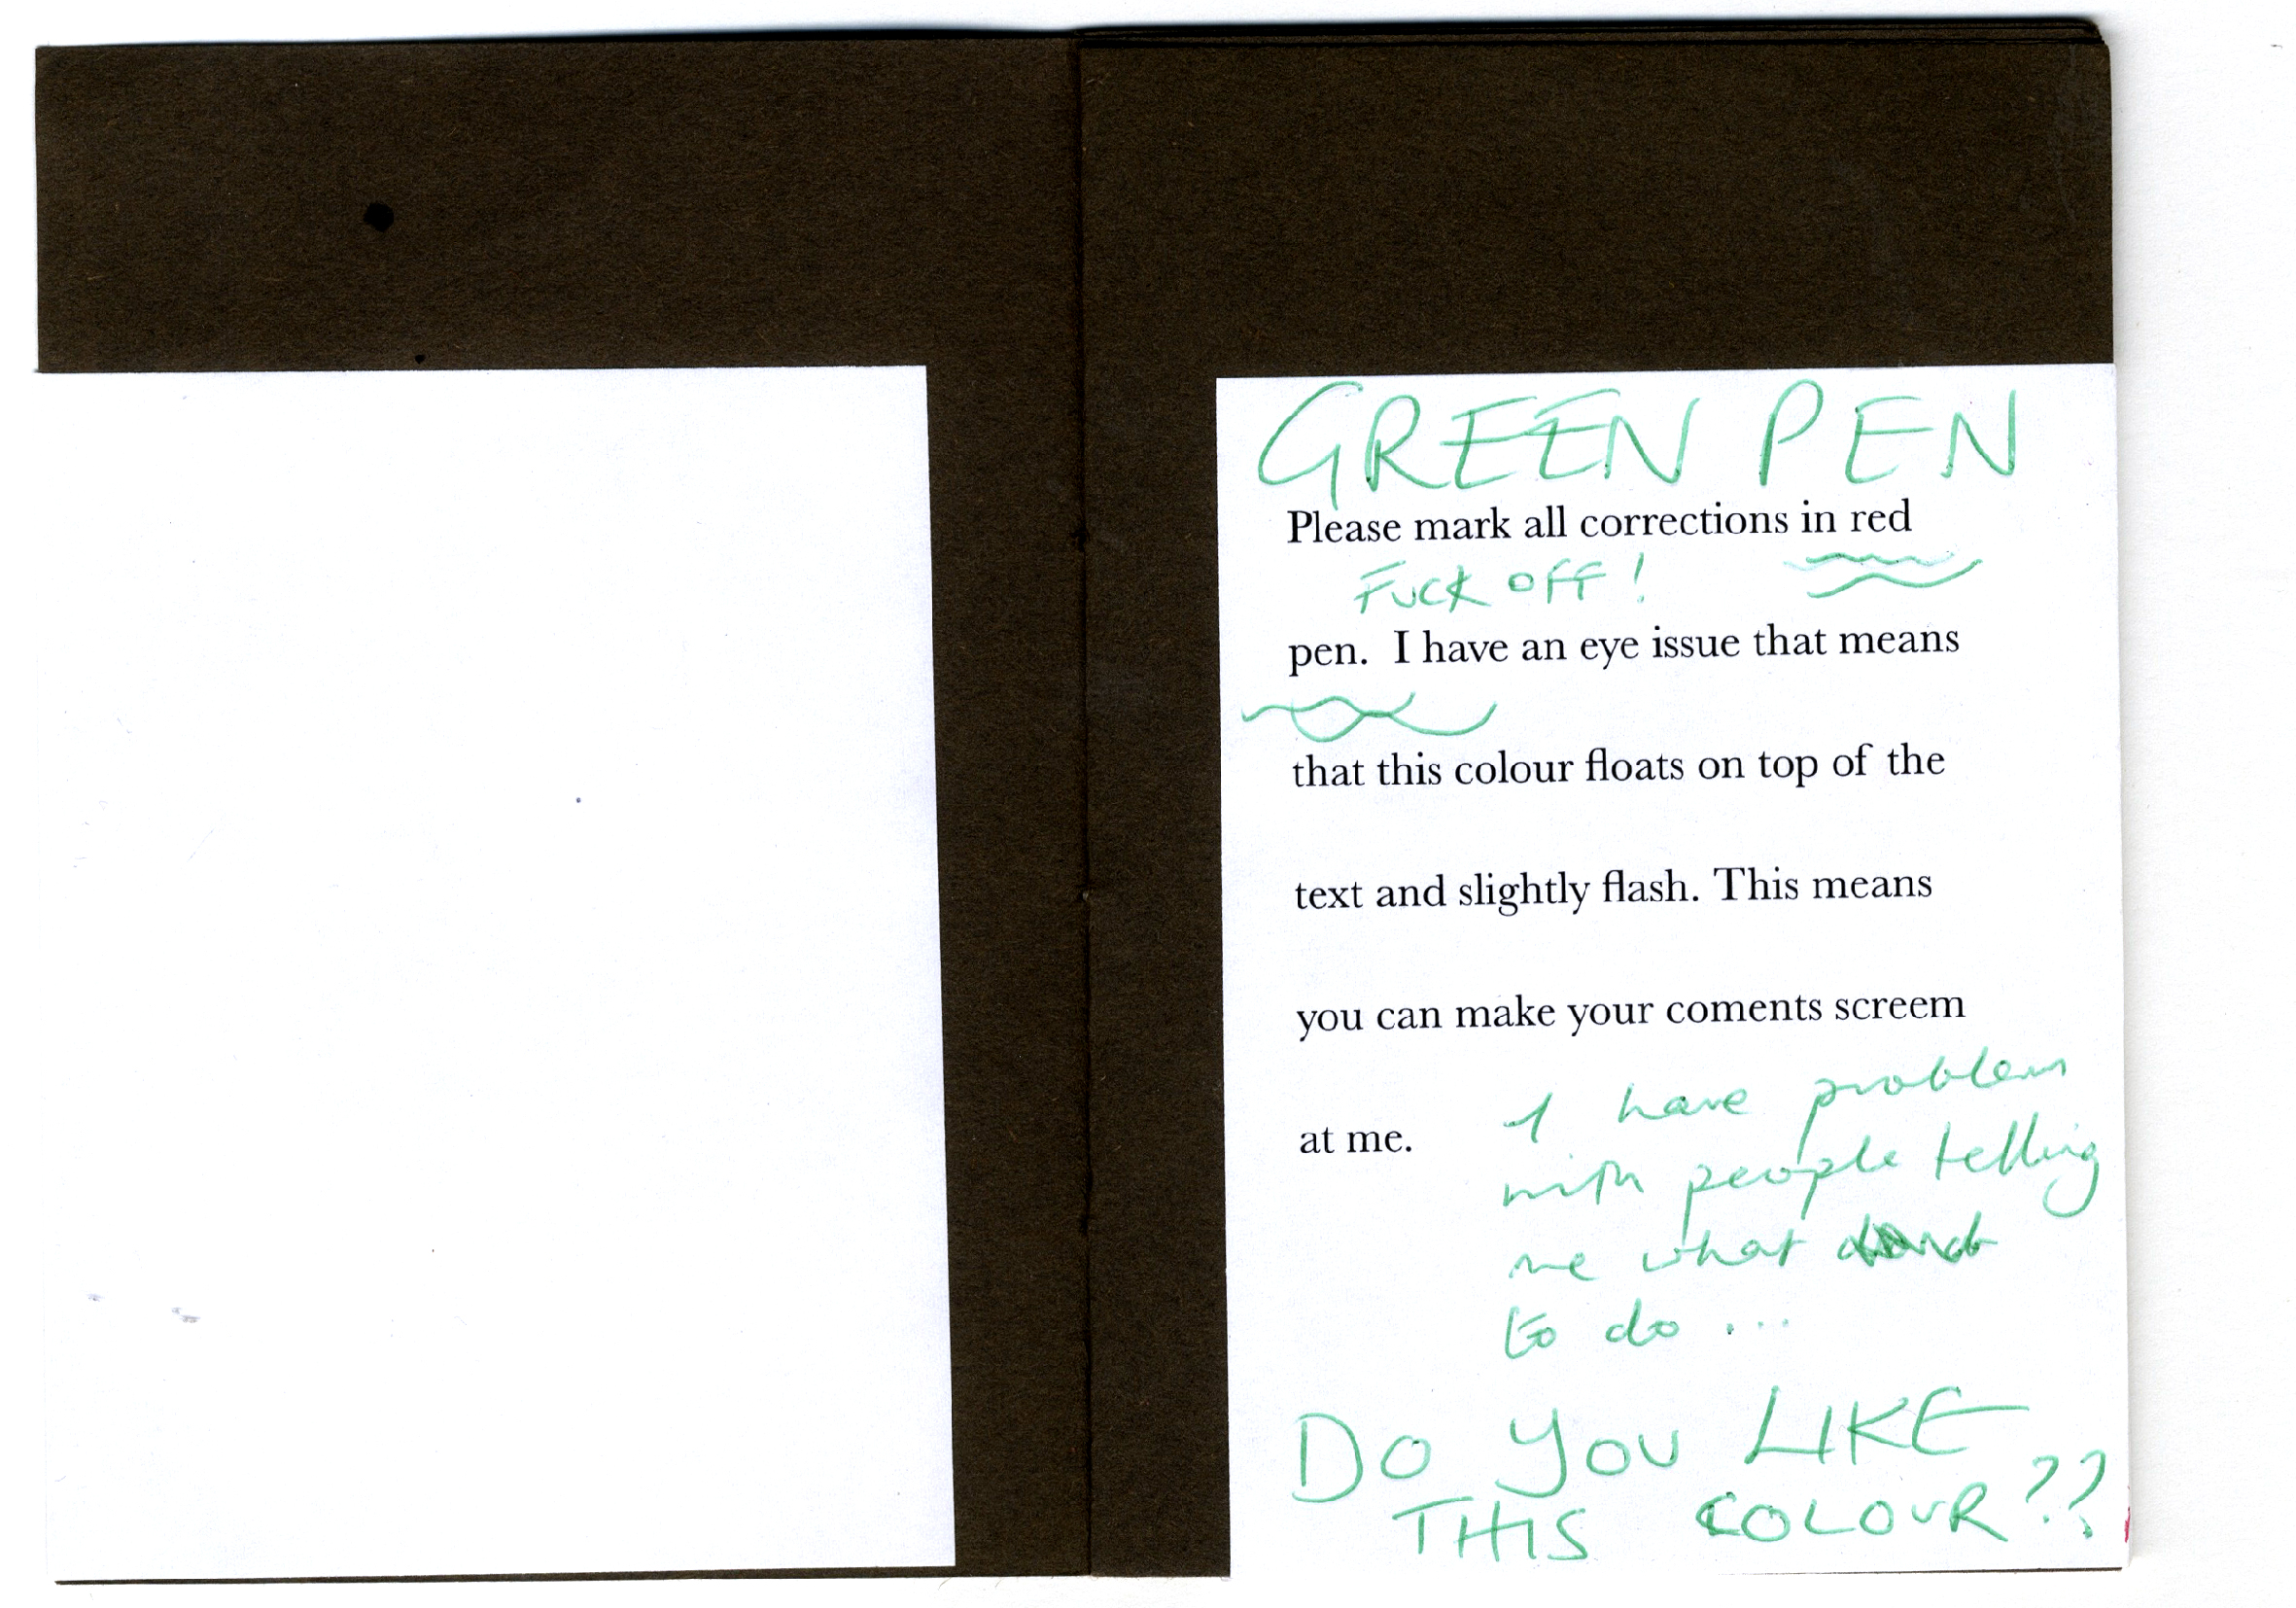 GREEN PEN
Please mark all corrections in red
FUCK OFF!
pen. I have an eye issue that means
that this colour floats on top of the
text and slightly flash. This means
you can make your coments screem
at me.
I have problem
with people telling
me what
to do ...
DO YOU LIKE
THIS COLOUR??